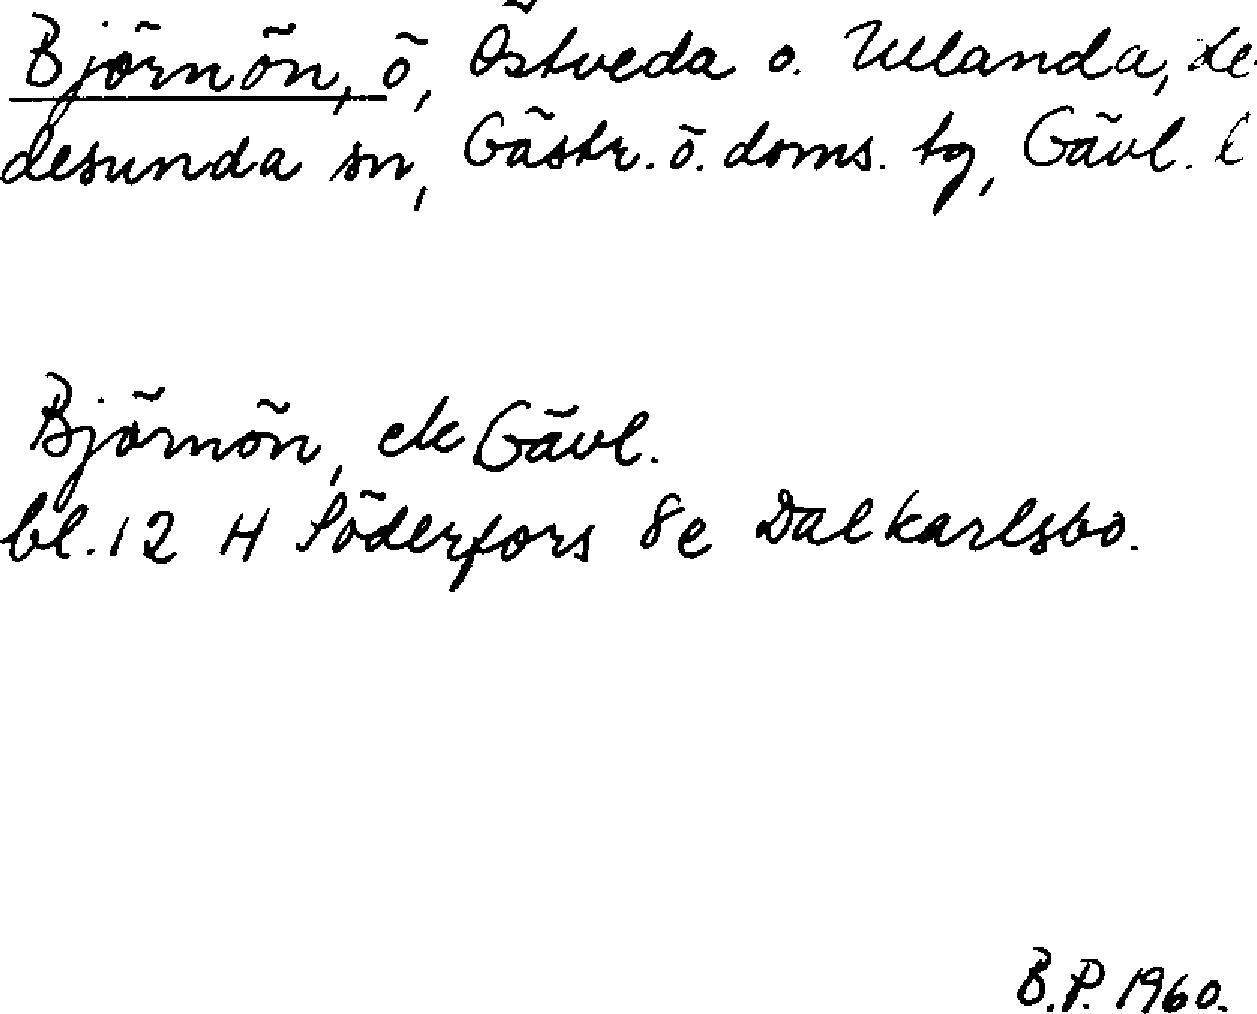 Björnön, ö, Östveda o. Ullanda, He
desunda sn, Gästr. ö. doms. tg, Gävl. l
Björnön, ek Gävl.
bl. 12 H Söderfors 8e Dalkarlsbo.
B.P. 1960.